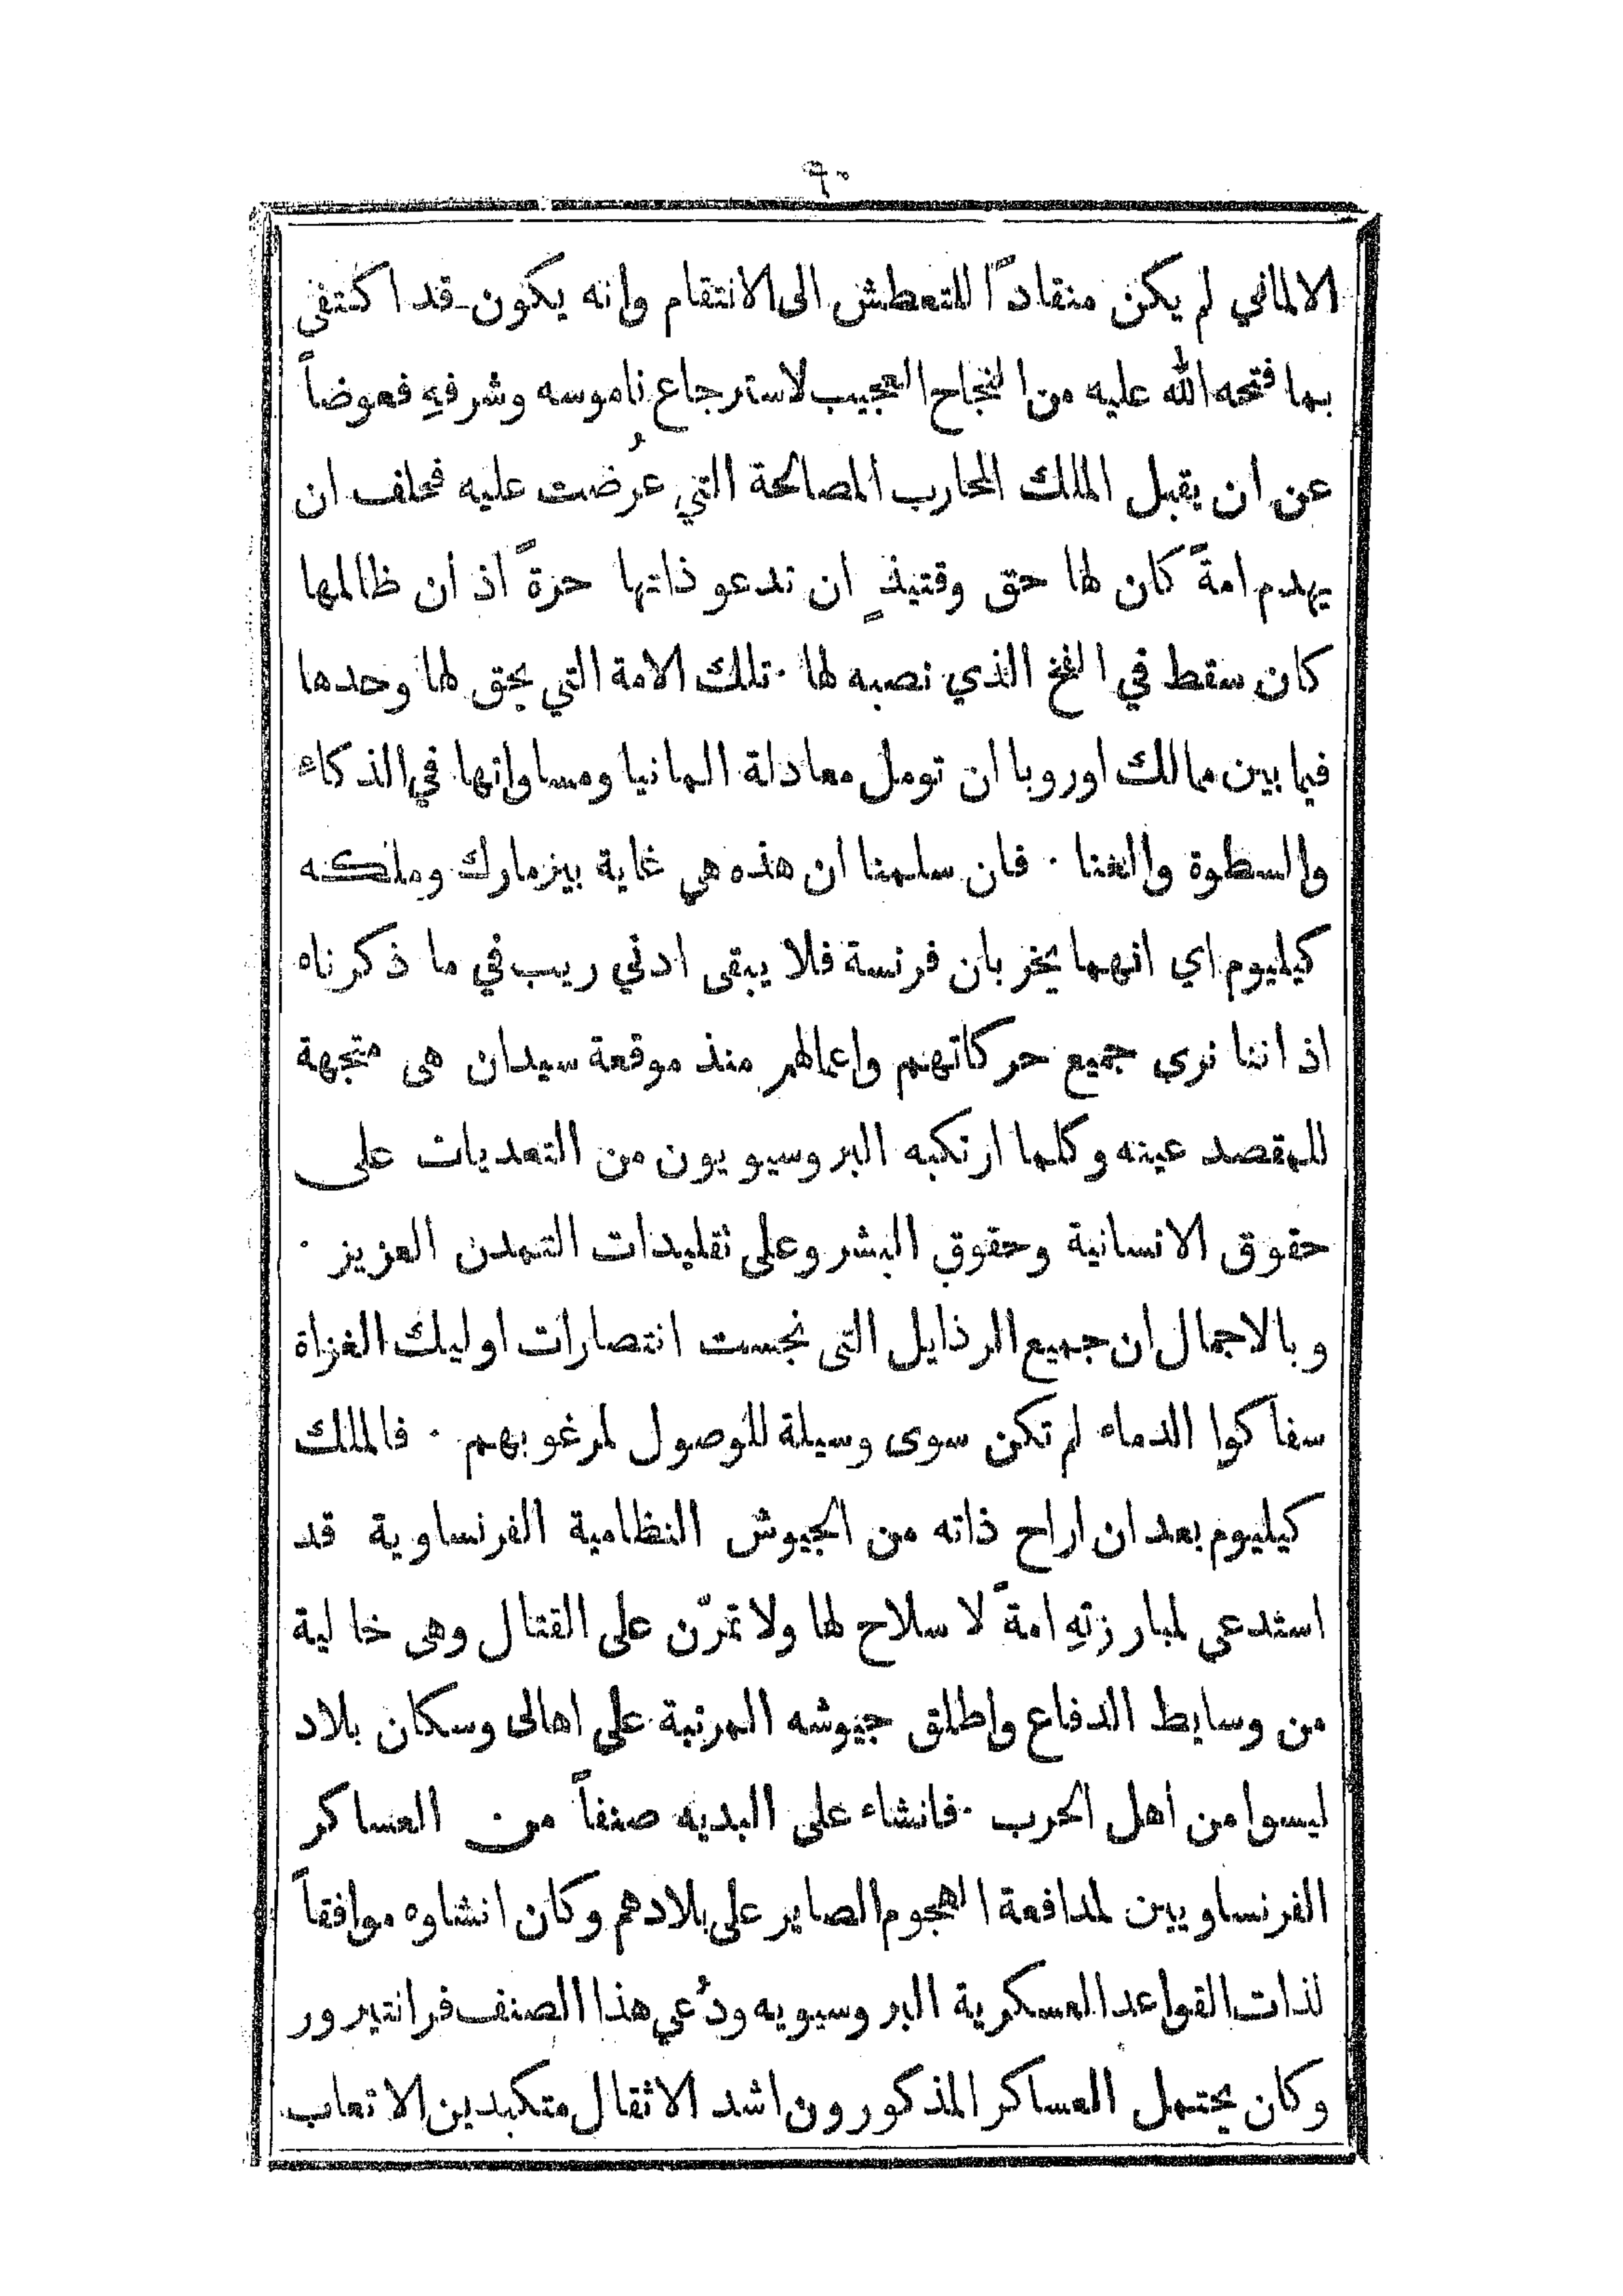 ٦٠
الالماني لم يكن منقاداً للتعطش الى الانتقام وانه يكون قد اكتفى
بما فتحه الله عليه من النجاح العجيب لاسترجاع ناموسه وشرفهِ فعوضاً
عن ان يقبل الملك المحارب المصالحة التي عُرضت عليه فحلف ان
يهدم امةً كان لها حق وقتيذٍ ان تدعو ذاتها حرةً اذ ان ظالمها
كان سقط في الفخ الذي نصبه لها ٠ تلك الامة التي يحق لها وحدها
فيما بين ممالك اوروبا ان تومل معادلة المانيا ومساواتها في الذكاء
والسطوة والغنا ٠ فان سلمنا ان هذه هي غاية بيزمارك وملكه
كيليوم اي انهما يخربان فرنسة فلا يبقى ادنى ريب في ما ذكرناه
اذ اننا نرى جميع حركاتهم واعمالهم منذ موقعة سيدان هى متجهة
للمقصد عينه وكلما ارتكبه البروسيويون من التعديات على
حقوق الانسانية وحقوق البشر وعلى تقليدات التمدن العزيز ٠
وبالاجمال ان جميع الرذايل التى نجست انتصارات اوليك الغزاة
سفاكوا الدماء لم تكن سوى وسيلة للوصول لمرغوبهم ٠ فالملك
كيليوم بعد ان اراح ذاته من الجيوش النظامية الفرنساوية قد
استدعى لمبارزتهِ امةً لا سلاح لها ولا تمرّن على القتال وهى خالية
من وسايط الدفاع واطلق جيوشه المرتبة على اهالى وسكان بلاد
ليسوا من أهل الحرب ٠ فانشاء على البديه صنفاً من العساكر
الفرنساويين لمدافعة الهجوم الصاير على بلادهم وكان انشاوه موافقاً
لذات القواعد العسكرية البروسيويه ودُعي هذا الصنف فرانتيرور
وكان يحتمل العساكر المذكورون اشد الاثقال متكبدين الاتعاب